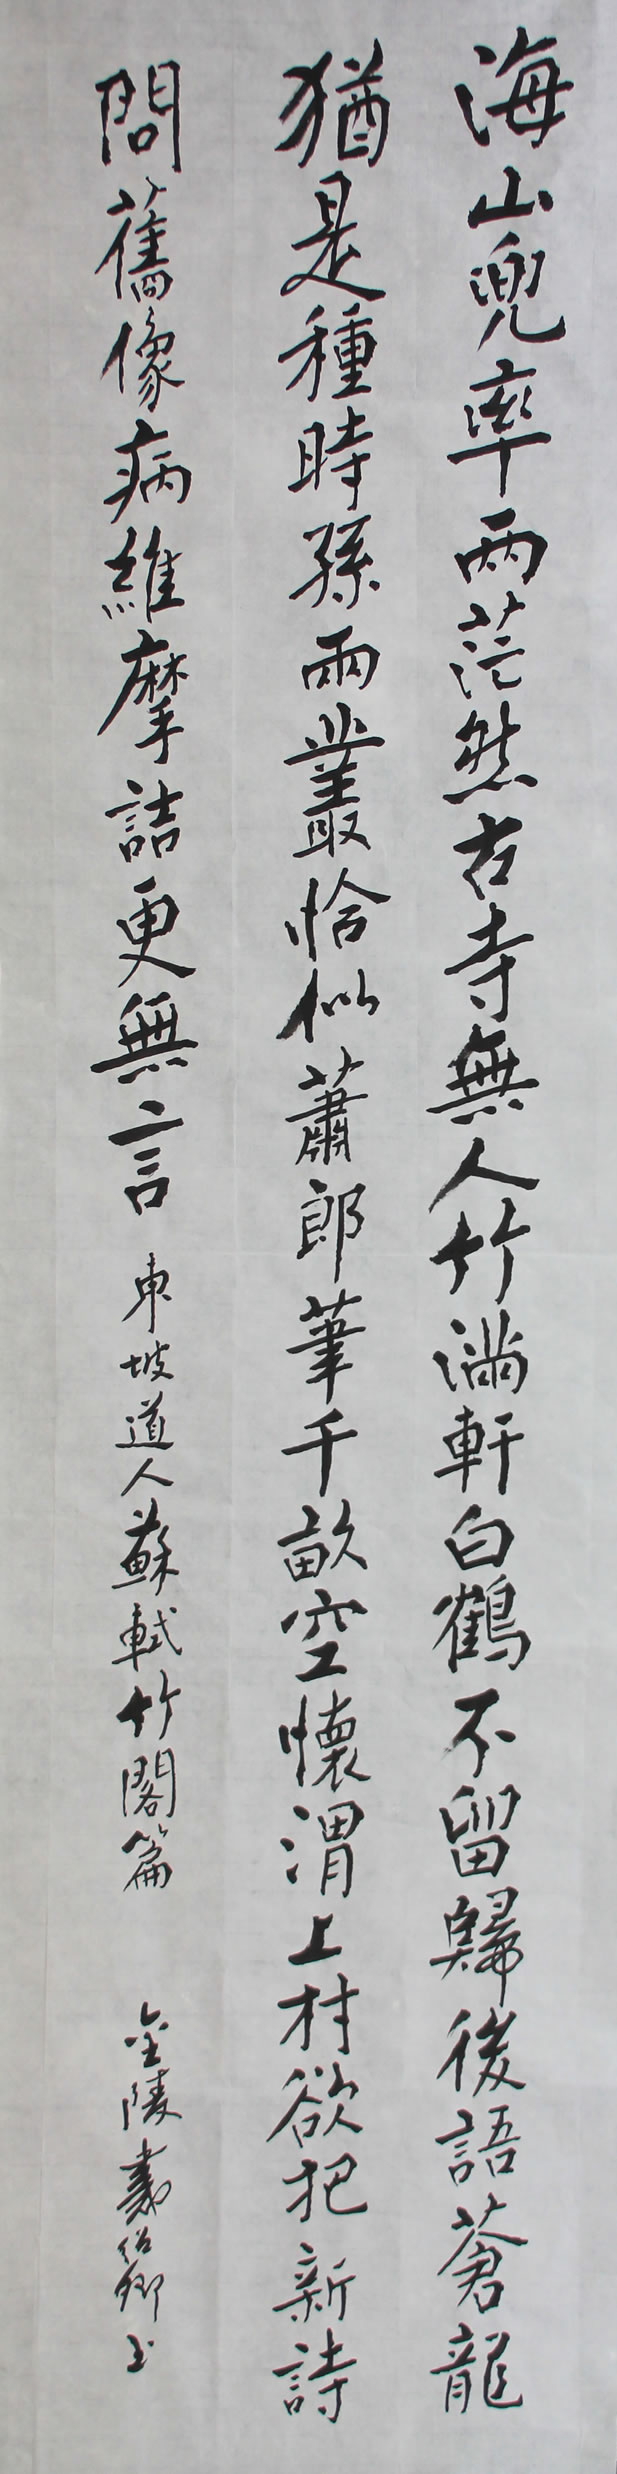 海山兜率兩茫然古寺無人竹滿軒白鶴不留歸後語蒼龍
猶是種時孫兩叢恰似蕭郎筆千畝空懷渭上村欲把新詩
問舊像病維摩詰更無言 東坡道人蘇軾竹閣篇 金陵